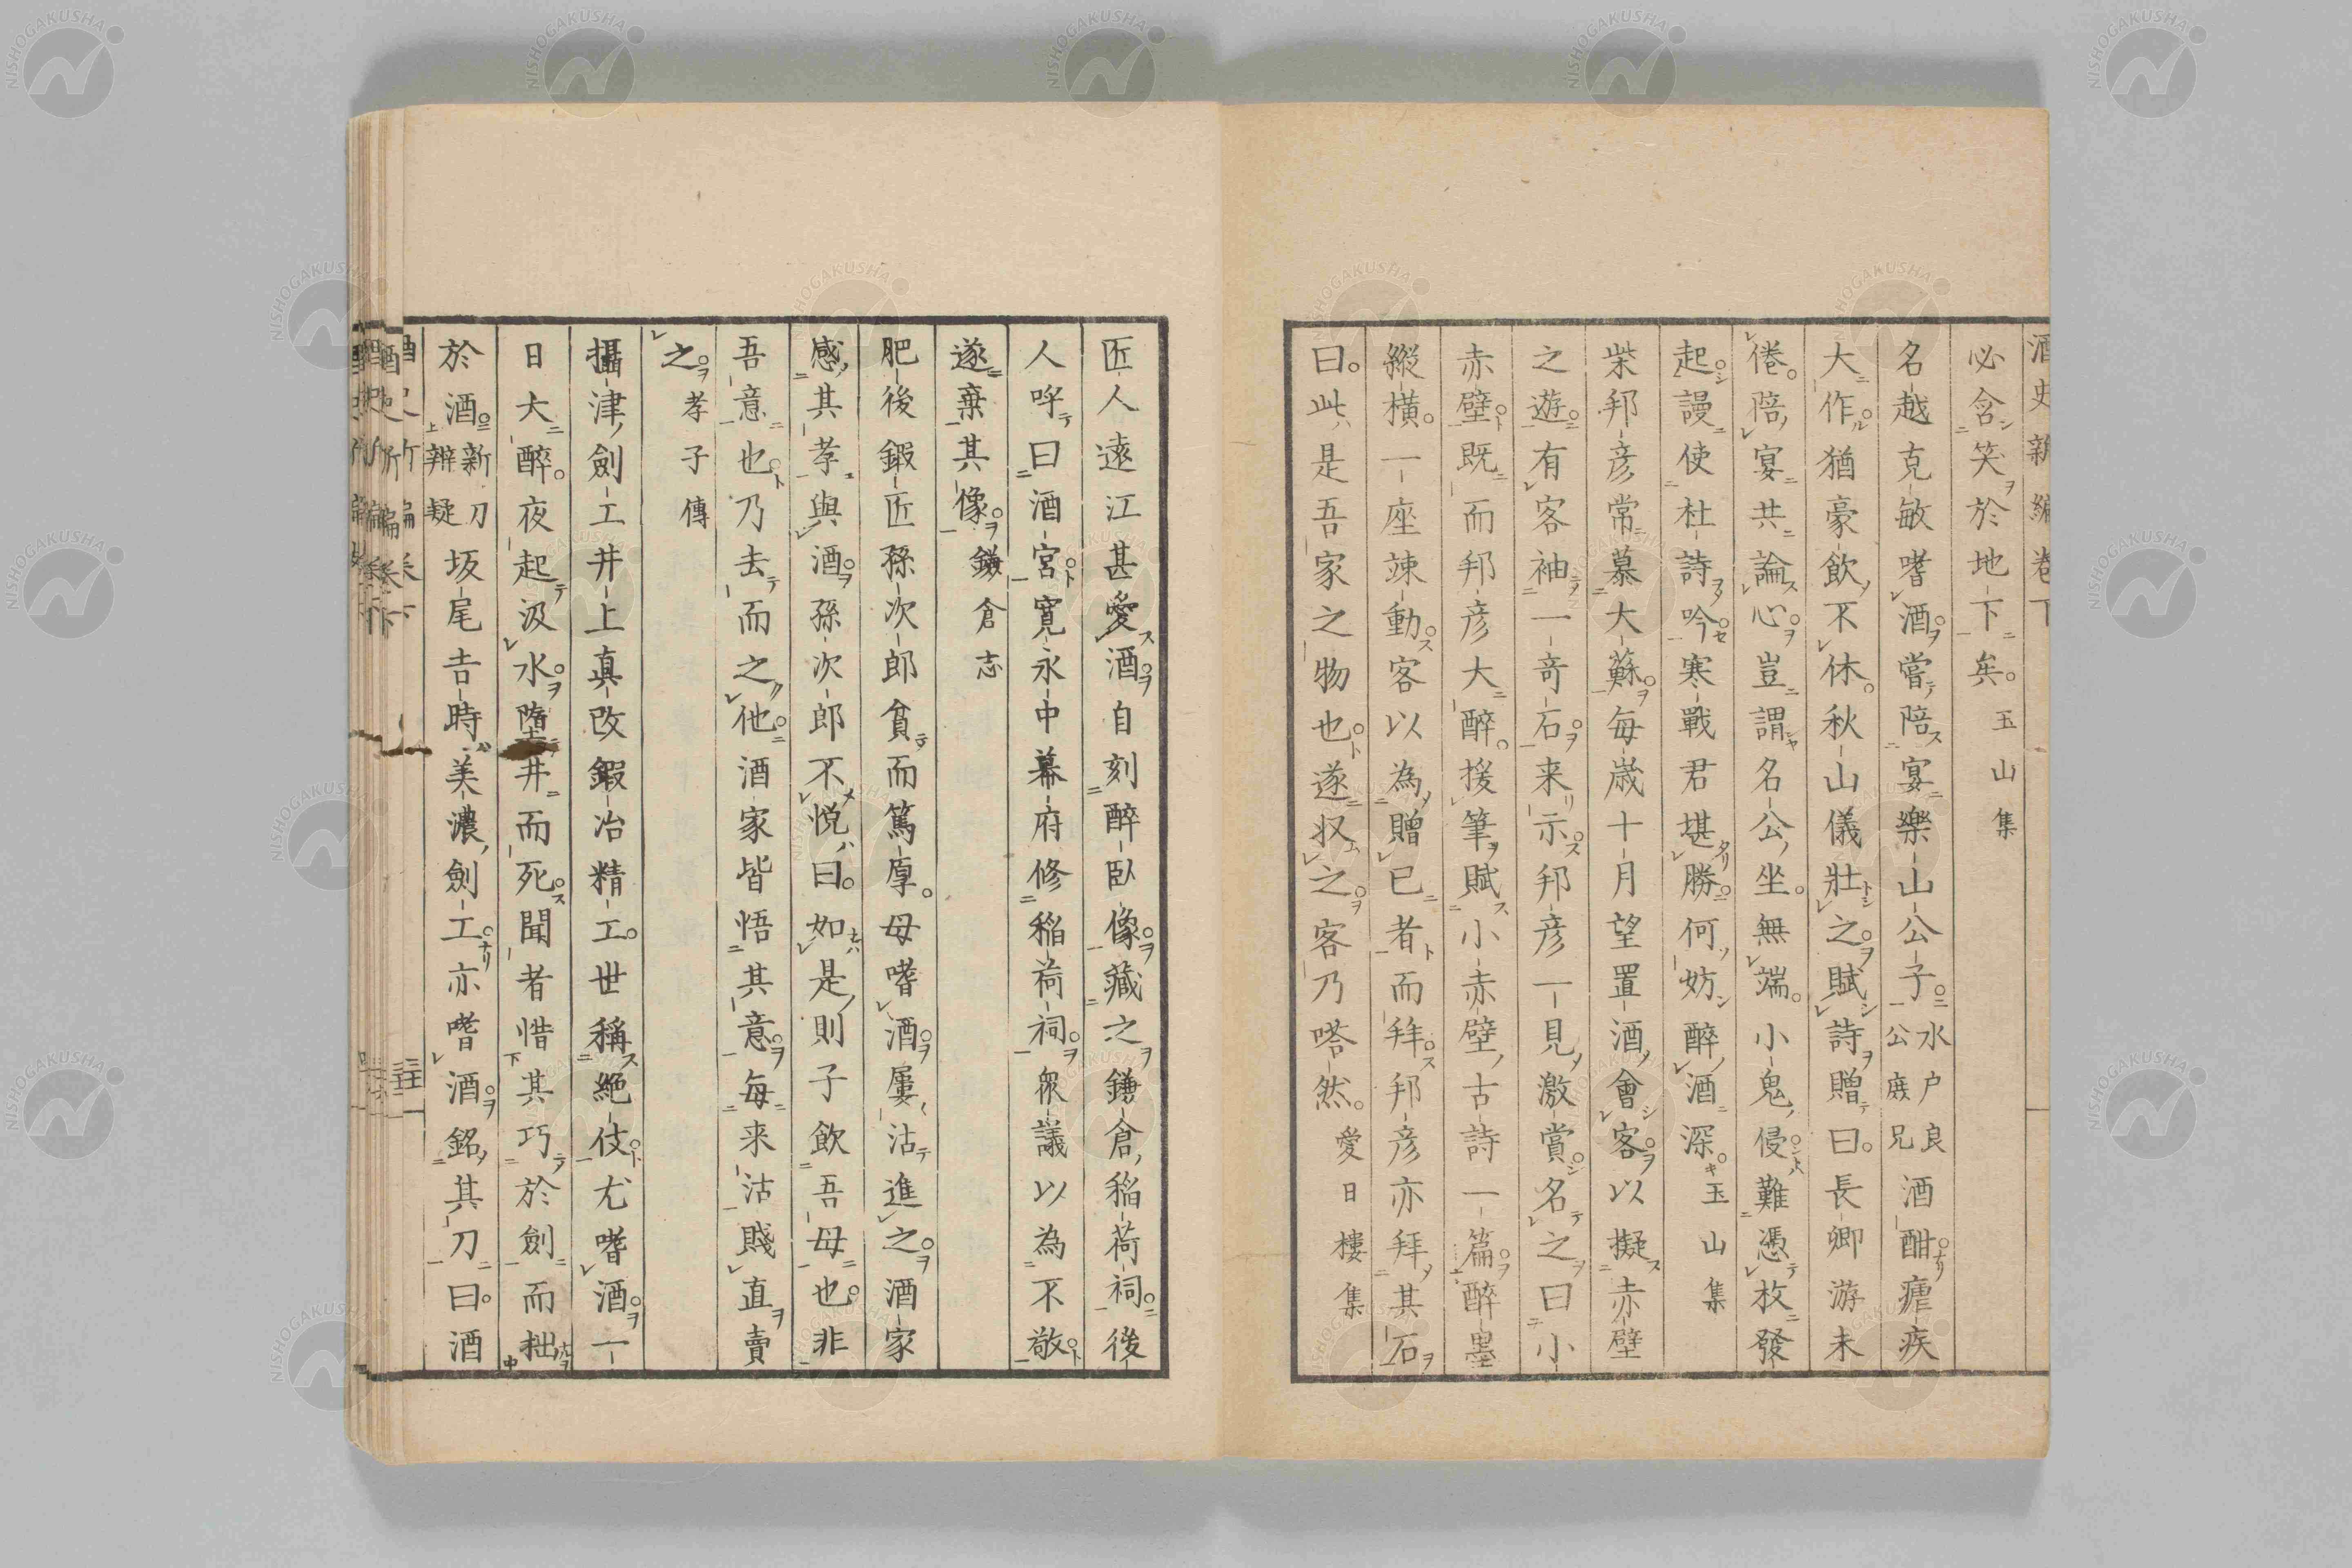 酒史新編卷下
必含笑於地下矣。玉山集
名越克敏嗜酒嘗陪宴樂山公子水戸良公庶兄酒酣瘧疾
大作猶豪飲不休。秋山儀壯之賦詩贈曰。長卿游未
倦。陪宴共論心豈謂名公坐。無端。小鬼侵難憑枚發
起謾使杜詩吟寒戰君堪勝何妨醉酒深。玉山集
柴邦彦常慕大蘇每歳十月望置酒會客以擬赤壁
之遊有客袖一奇石来示邦彦一見激賞名之曰小
赤壁既而邦彦大醉。援筆賦小赤壁古詩一篇醉墨
縱橫。一座竦動客以為贈已者而拜邦彦亦拜其石
曰。此是吾家之物也遂収之客乃嗒然。愛日樓集
匠人遠江甚愛酒自刻醉臥像藏之鎌倉稲荷祠後
人呼曰酒宮寛永中幕府修稲荷祠衆議以為不敬
遂棄其像鎌倉志
肥後鍛匠孫次郎貧而篤厚。母嗜酒屢沽進之酒家
感其孝與酒孫次郎不悦曰。如是則子飲吾母也非
吾意也乃去而之他酒家皆悟其意每来沽賤直賣
之孝子傳
攝津劍工井上真改鍛冶精工。世稱絶伎尤嗜酒一
日大醉。夜起汲水墮井而死聞者惜其巧於劍而拙
於酒新刀辨疑坂尾吉時美濃劍工亦嗜酒銘其刀曰。酒